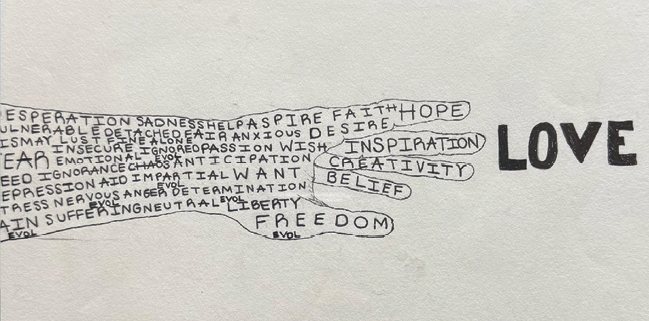 ESPERATION SADNESS HELP ASPIRE FAITH HOPE
ULNERABLE DETACHED FAIR ANXIOUS DESIRE
ISMAY LUST FINE ALONE
INSECURE IGNORED PASSION WISH INSPIRATION
EAR EMOTIONAL EVOL ANTICIPATION
CREATIVITY
EED IGNORANCE CHAOS
IMPARTIAL WANT
BELIEF
EPRESSION AID EVOL
TRESS NERVOUS ANGER DETERMINATION
EVOL EVOL LIBERTY
AIN SUFFERING NEUTRAL
FREEDOM
EVOL EVOL
LOVE